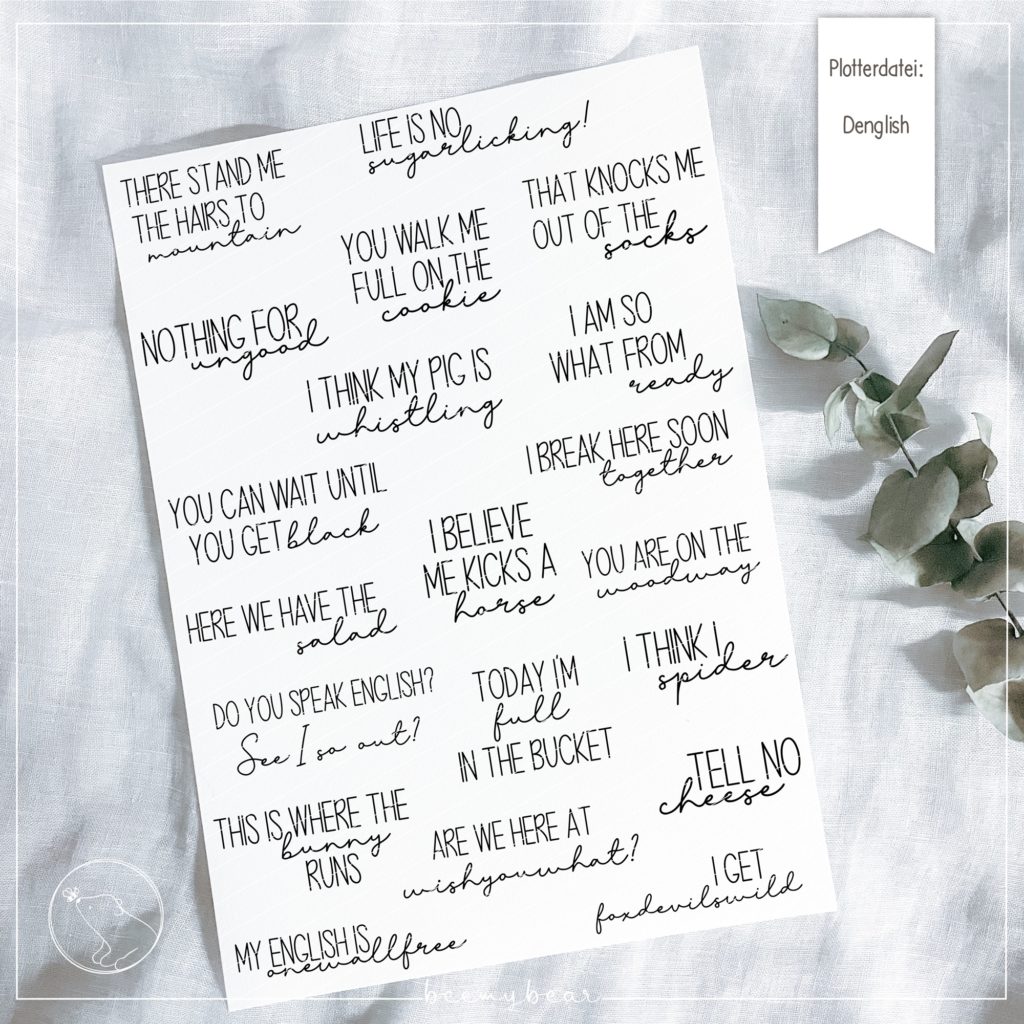 Plotterdatei:
Denglish
LIFE IS NO
sugarlicking!
THERE STAND ME
THE HAIRS TO
mountain
THAT KNOCKS ME
OUT OF THE
socks
YOU WALK ME
FULL ON THE
cookie
NOTHING FOR
ungood
I AM SO
WHAT FROM
ready
I THINK MY PIG IS
whistling
I BREAK HERE SOON
together
YOU CAN WAIT UNTIL
YOU GET black
I BELIEVE
ME KICKS A
horse
YOU ARE ON THE
woodway
HERE WE HAVE THE
salad
I THINK I
spider
DO YOU SPEAK ENGLISH?
See I so out?
TODAY I'M
full
IN THE BUCKET
TELL NO
cheese
THIS IS WHERE THE
bunny
RUNS
ARE WE HERE AT
wishyouwhat?
I GET
foxdevilswild
MY ENGLISH IS
onewallfree
beemybear